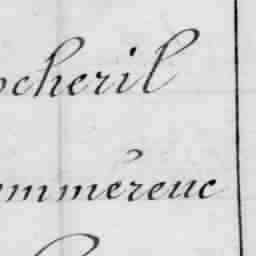 ocheril
emméreuc